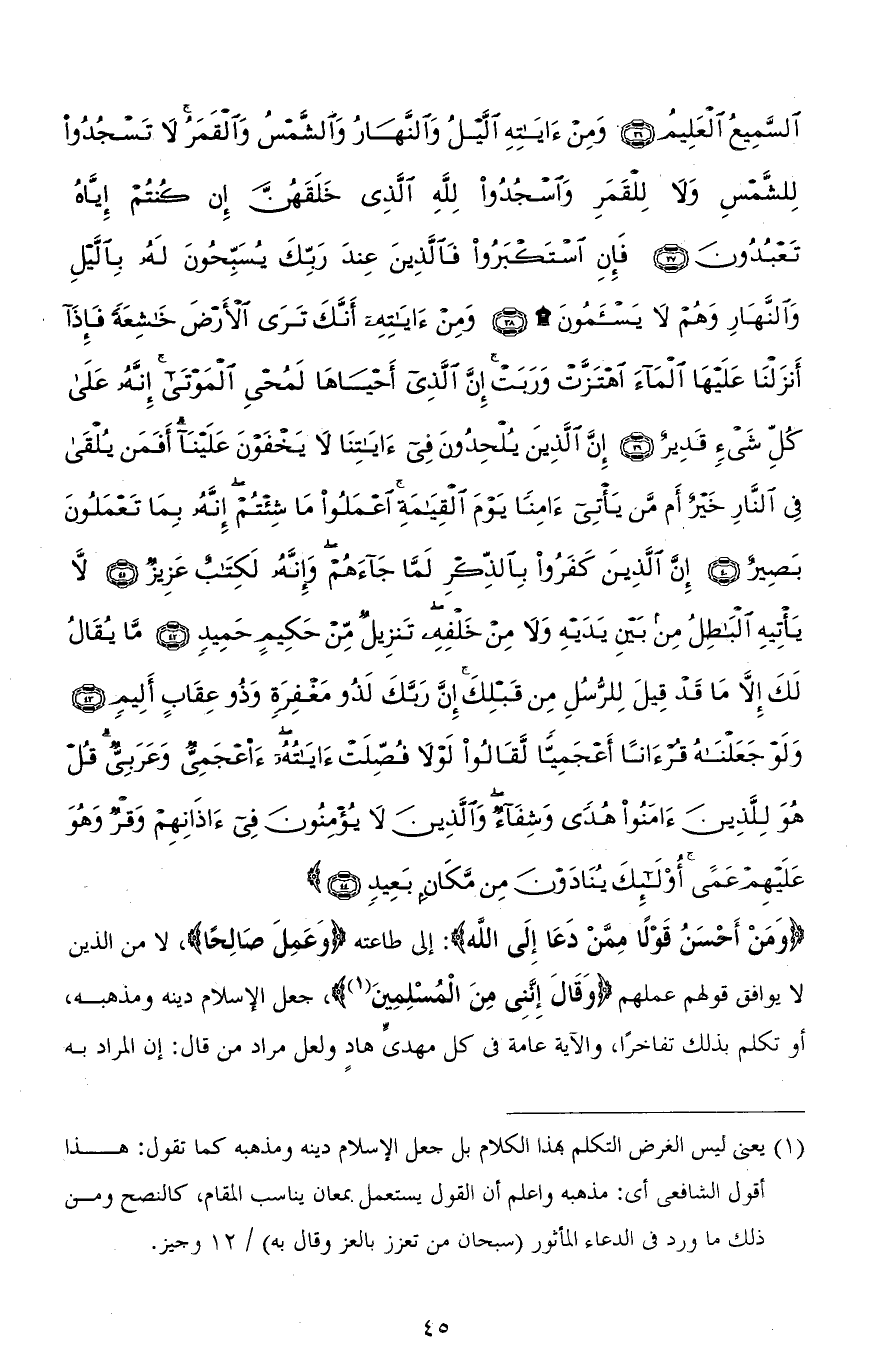 ٱلسَّمِيعُ ٱلْعَلِيمُ ﴿٣٦﴾ وَمِنْ ءَايَـٰتِهِ ٱلَّيْلُ وَٱلنَّهَارُ وَٱلشَّمْسُ وَٱلْقَمَرُ ۚ لَا تَسْجُدُوا۟
لِلشَّمْسِ وَلَا لِلْقَمَرِ وَٱسْجُدُوا۟ لِلَّهِ ٱلَّذِى خَلَقَهُنَّ إِن كُنتُمْ إِيَّاهُ
تَعْبُدُونَ ﴿٣٧﴾ فَإِنِ ٱسْتَكْبَرُوا۟ فَٱلَّذِينَ عِندَ رَبِّكَ يُسَبِّحُونَ لَهُۥ بِٱلَّيْلِ
وَٱلنَّهَارِ وَهُمْ لَا يَسْـَٔمُونَ ۩ ﴿٣٨﴾ وَمِنْ ءَايَـٰتِهِۦٓ أَنَّكَ تَرَى ٱلْأَرْضَ خَـٰشِعَةً فَإِذَآ
أَنزَلْنَا عَلَيْهَا ٱلْمَآءَ ٱهْتَزَّتْ وَرَبَتْ ۚ إِنَّ ٱلَّذِىٓ أَحْيَاهَا لَمُحْىِ ٱلْمَوْتَىٰٓ ۚ إِنَّهُۥ عَلَىٰ
كُلِّ شَىْءٍ قَدِيرٌ ﴿٣٩﴾ إِنَّ ٱلَّذِينَ يُلْحِدُونَ فِىٓ ءَايَـٰتِنَا لَا يَخْفَوْنَ عَلَيْنَآ ۗ أَفَمَن يُلْقَىٰ
فِى ٱلنَّارِ خَيْرٌ أَم مَّن يَأْتِىٓ ءَامِنًا يَوْمَ ٱلْقِيَـٰمَةِ ۚ ٱعْمَلُوا۟ مَا شِئْتُمْ ۖ إِنَّهُۥ بِمَا تَعْمَلُونَ
بَصِيرٌ ﴿٤٠﴾ إِنَّ ٱلَّذِينَ كَفَرُوا۟ بِٱلذِّكْرِ لَمَّا جَآءَهُمْ ۖ وَإِنَّهُۥ لَكِتَـٰبٌ عَزِيزٌ ﴿٤١﴾ لَّا
يَأْتِيهِ ٱلْبَـٰطِلُ مِنۢ بَيْنِ يَدَيْهِ وَلَا مِنْ خَلْفِهِۦ ۖ تَنزِيلٌ مِّنْ حَكِيمٍ حَمِيدٍ ﴿٤٢﴾ مَّا يُقَالُ
لَكَ إِلَّا مَا قَدْ قِيلَ لِلرُّسُلِ مِن قَبْلِكَ ۚ إِنَّ رَبَّكَ لَذُو مَغْفِرَةٍ وَذُو عِقَابٍ أَلِيمٍ ﴿٤٣﴾
وَلَوْ جَعَلْنَـٰهُ قُرْءَانًا أَعْجَمِيًّا لَّقَالُوا۟ لَوْلَا فُصِّلَتْ ءَايَـٰتُهُۥٓ ۖ ءَا۬عْجَمِىٌّ وَعَرَبِىٌّ ۗ قُلْ
هُوَ لِلَّذِينَ ءَامَنُوا۟ هُدًى وَشِفَآءٌ ۖ وَٱلَّذِينَ لَا يُؤْمِنُونَ فِىٓ ءَاذَانِهِمْ وَقْرٌ وَهُوَ
عَلَيْهِمْ عَمًى ۚ أُو۟لَـٰٓئِكَ يُنَادَوْنَ مِن مَّكَانٍۭ بَعِيدٍ ﴿٤٤﴾ ﴾
﴿وَمَنْ أَحْسَنُ قَوْلًا مِمَّنْ دَعَا إِلَى اللَّه﴾: إلى طاعته ﴿وَعَمِلَ صَالِحًا﴾، لا من الذين
لا يوافق قولهم عملهم ﴿وَقَالَ إِنَّنِى مِنَ الْمُسْلِمِينَ(١)﴾، جعل الإسلام دينه ومذهبـــه،
أو تكلم بذلك تفاخرًا، والآية عامة فى كل مهدىٌّ هادٍ ولعل مراد من قال: إن المراد بـه
(١) يعنى ليس الغرض التكلم بهذا الكلام بل جعل الإسلام دينه ومذهبه كما تقول: هـــــذا
أقول الشافعى أى: مذهبه واعلم أن القول يستعمل بمعان يناسب المقام، كالنصح ومـــن
ذلك ما ورد فى الدعاء المأثور (سبحان من تعزز بالعز وقال به) / ١٢ وجيز.
٤٥